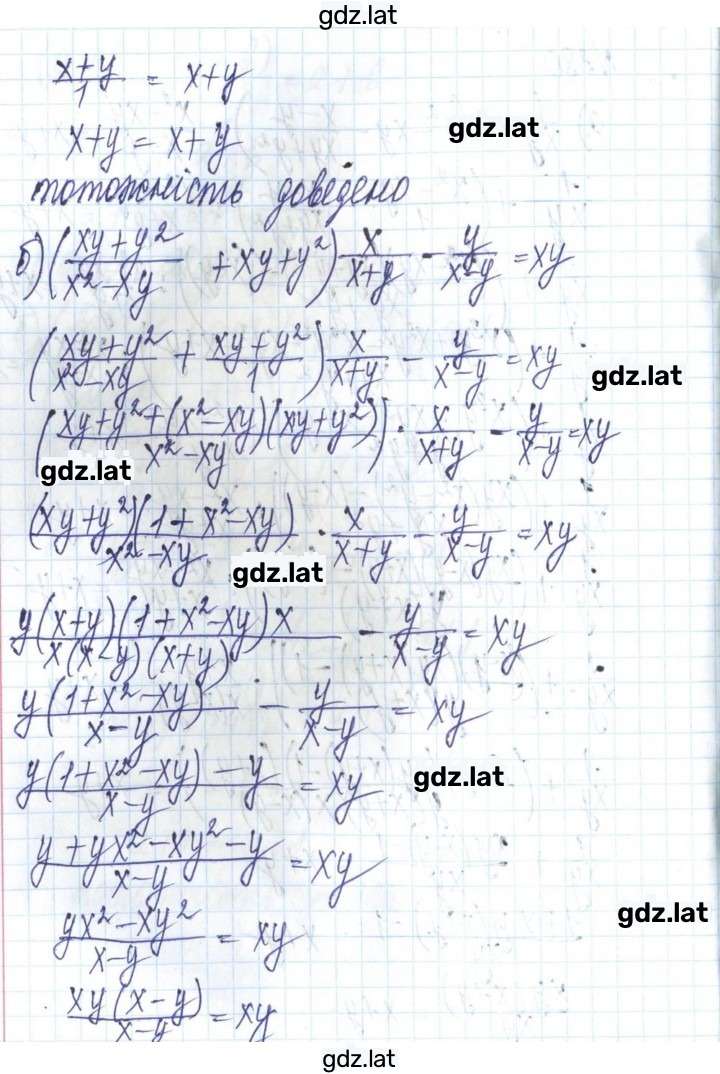 gdz.lat
(x+y)/1 = x+y
x+y = x+y
gdz.lat
тотожність доведено
б) ((xy+y²)/(x²-xy) + xy+y²) x/(x+y) - y/(x-y) = xy
((xy+y²)/(x²-xy) + (xy+y²)/1) x/(x+y) - y/(x-y) = xy
gdz.lat
((xy+y²+(x²-xy)(xy+y²))/(x²-xy)) · x/(x+y) - y/(x-y) = xy
gdz.lat
(xy+y²)(1+x²-xy)/(x²-xy) · x/(x+y) - y/(x-y) = xy
gdz.lat
y(x+y)(1+x²-xy)x/(x(x-y)(x+y)) - y/(x-y) = xy
y(1+x²-xy)/(x-y) - y/(x-y) = xy
(y(1+x²-xy)-y)/(x-y) = xy
gdz.lat
(y+yx²-xy²-y)/(x-y) = xy
gdz.lat
(yx²-xy²)/(x-y) = xy
xy(x-y)/(x-y) = xy
gdz.lat